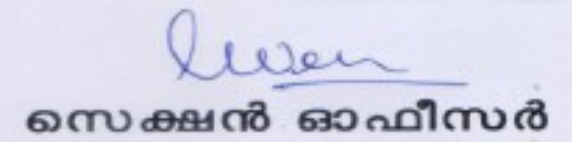 സെക്ഷൻ ഓഫീസർ